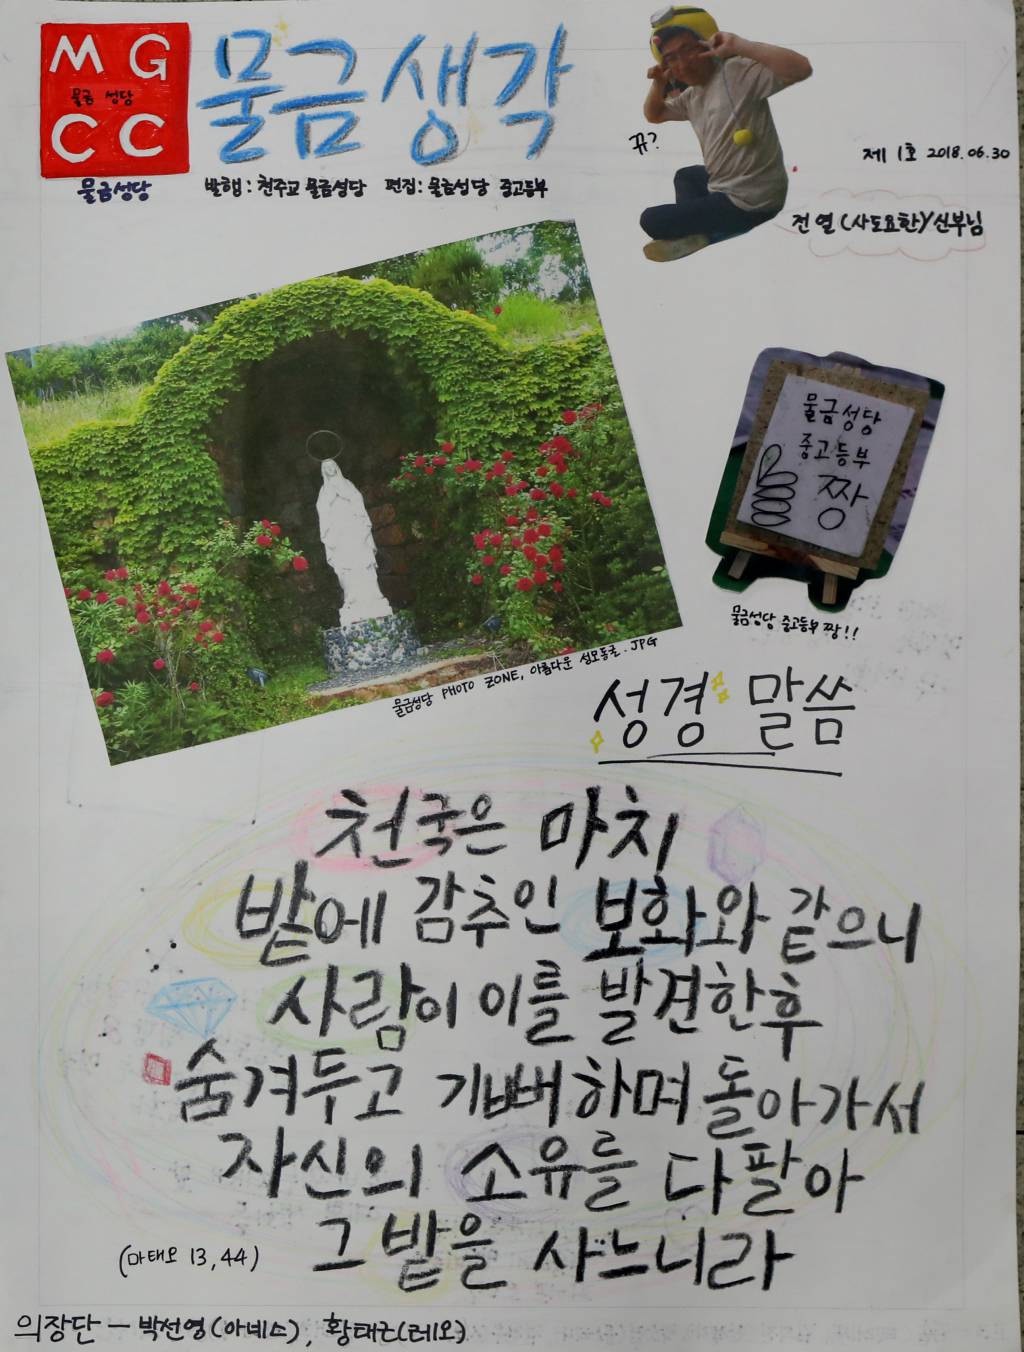 M G
물금 성당
C C
물금성당
물금생각
발행: 천주교 물금성당 편집: 물금성당 중고등부
뀨?
제 1호 2018.06.30
전 열 (사도요한) 신부님
물금성당
중고등부
짱
물금성당 중고등부 짱!!
물금성당 PHOTO ZONE, 아름다운 성모동굴.JPG
성경 말씀
천국은 마치
밭에 감추인 보화와 같으니
사람이 이를 발견한후
숨겨두고 기뻐하며 돌아가서
자신의 소유를 다팔아
그 밭을 사느니라
(마태오 13,44)
의장단 - 박선영(아녜스), 황태근(레오)